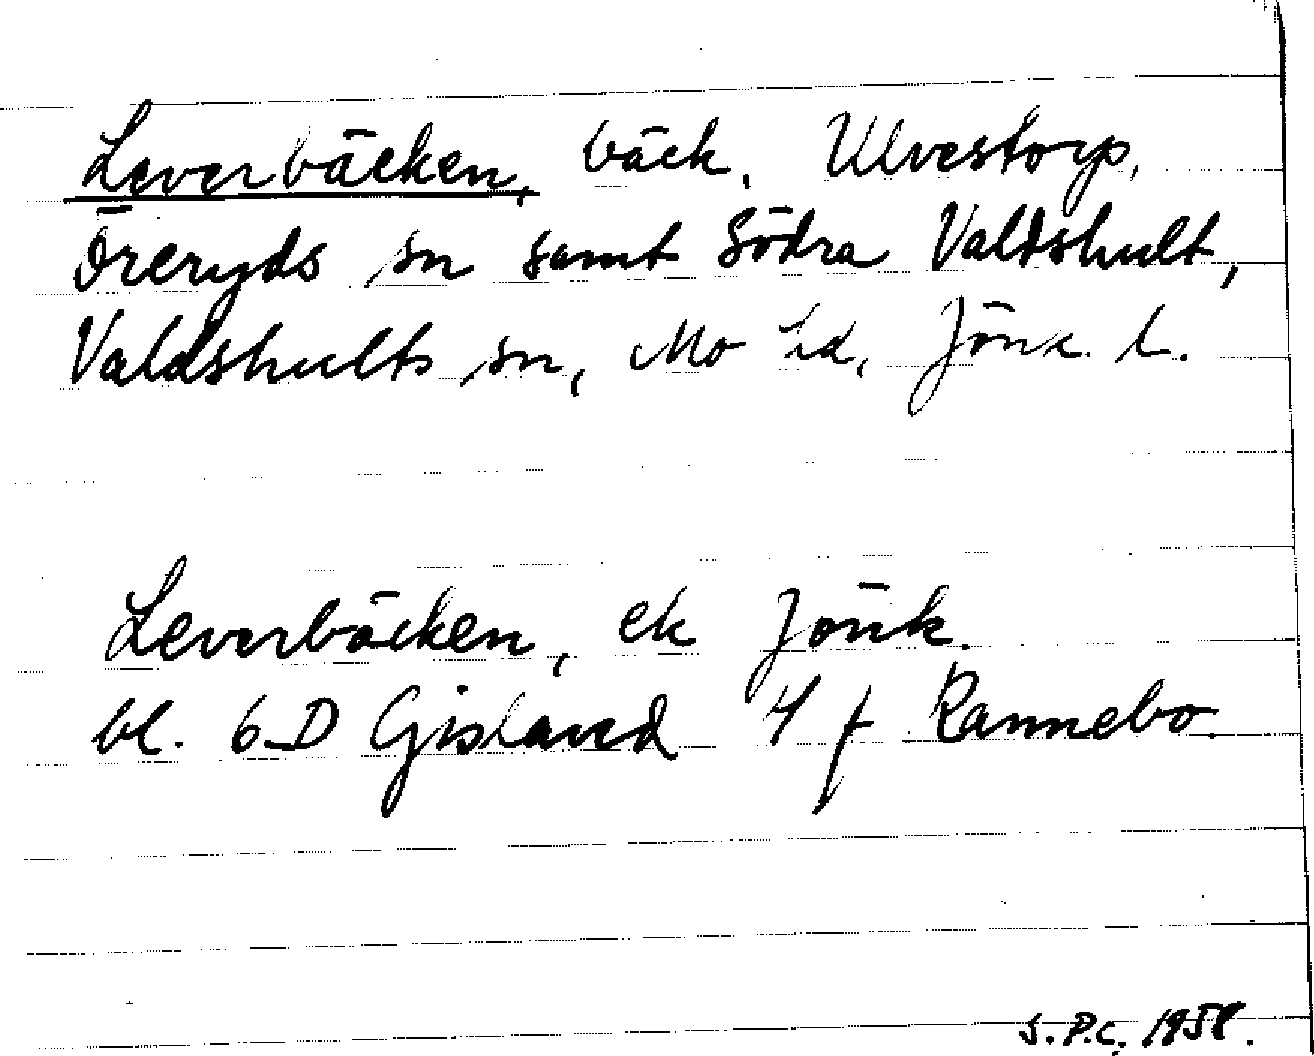 Leverbäcken, bäck. Ulvestorp,
Öreryds sn samt Södra Valdshult,
Valdshults sn, Mo hd, Jönk. l.
Leverbäcken, ek Jönk.
bl. 6D Gislaved 4 f Rannebo.
S.P.C. 1958.